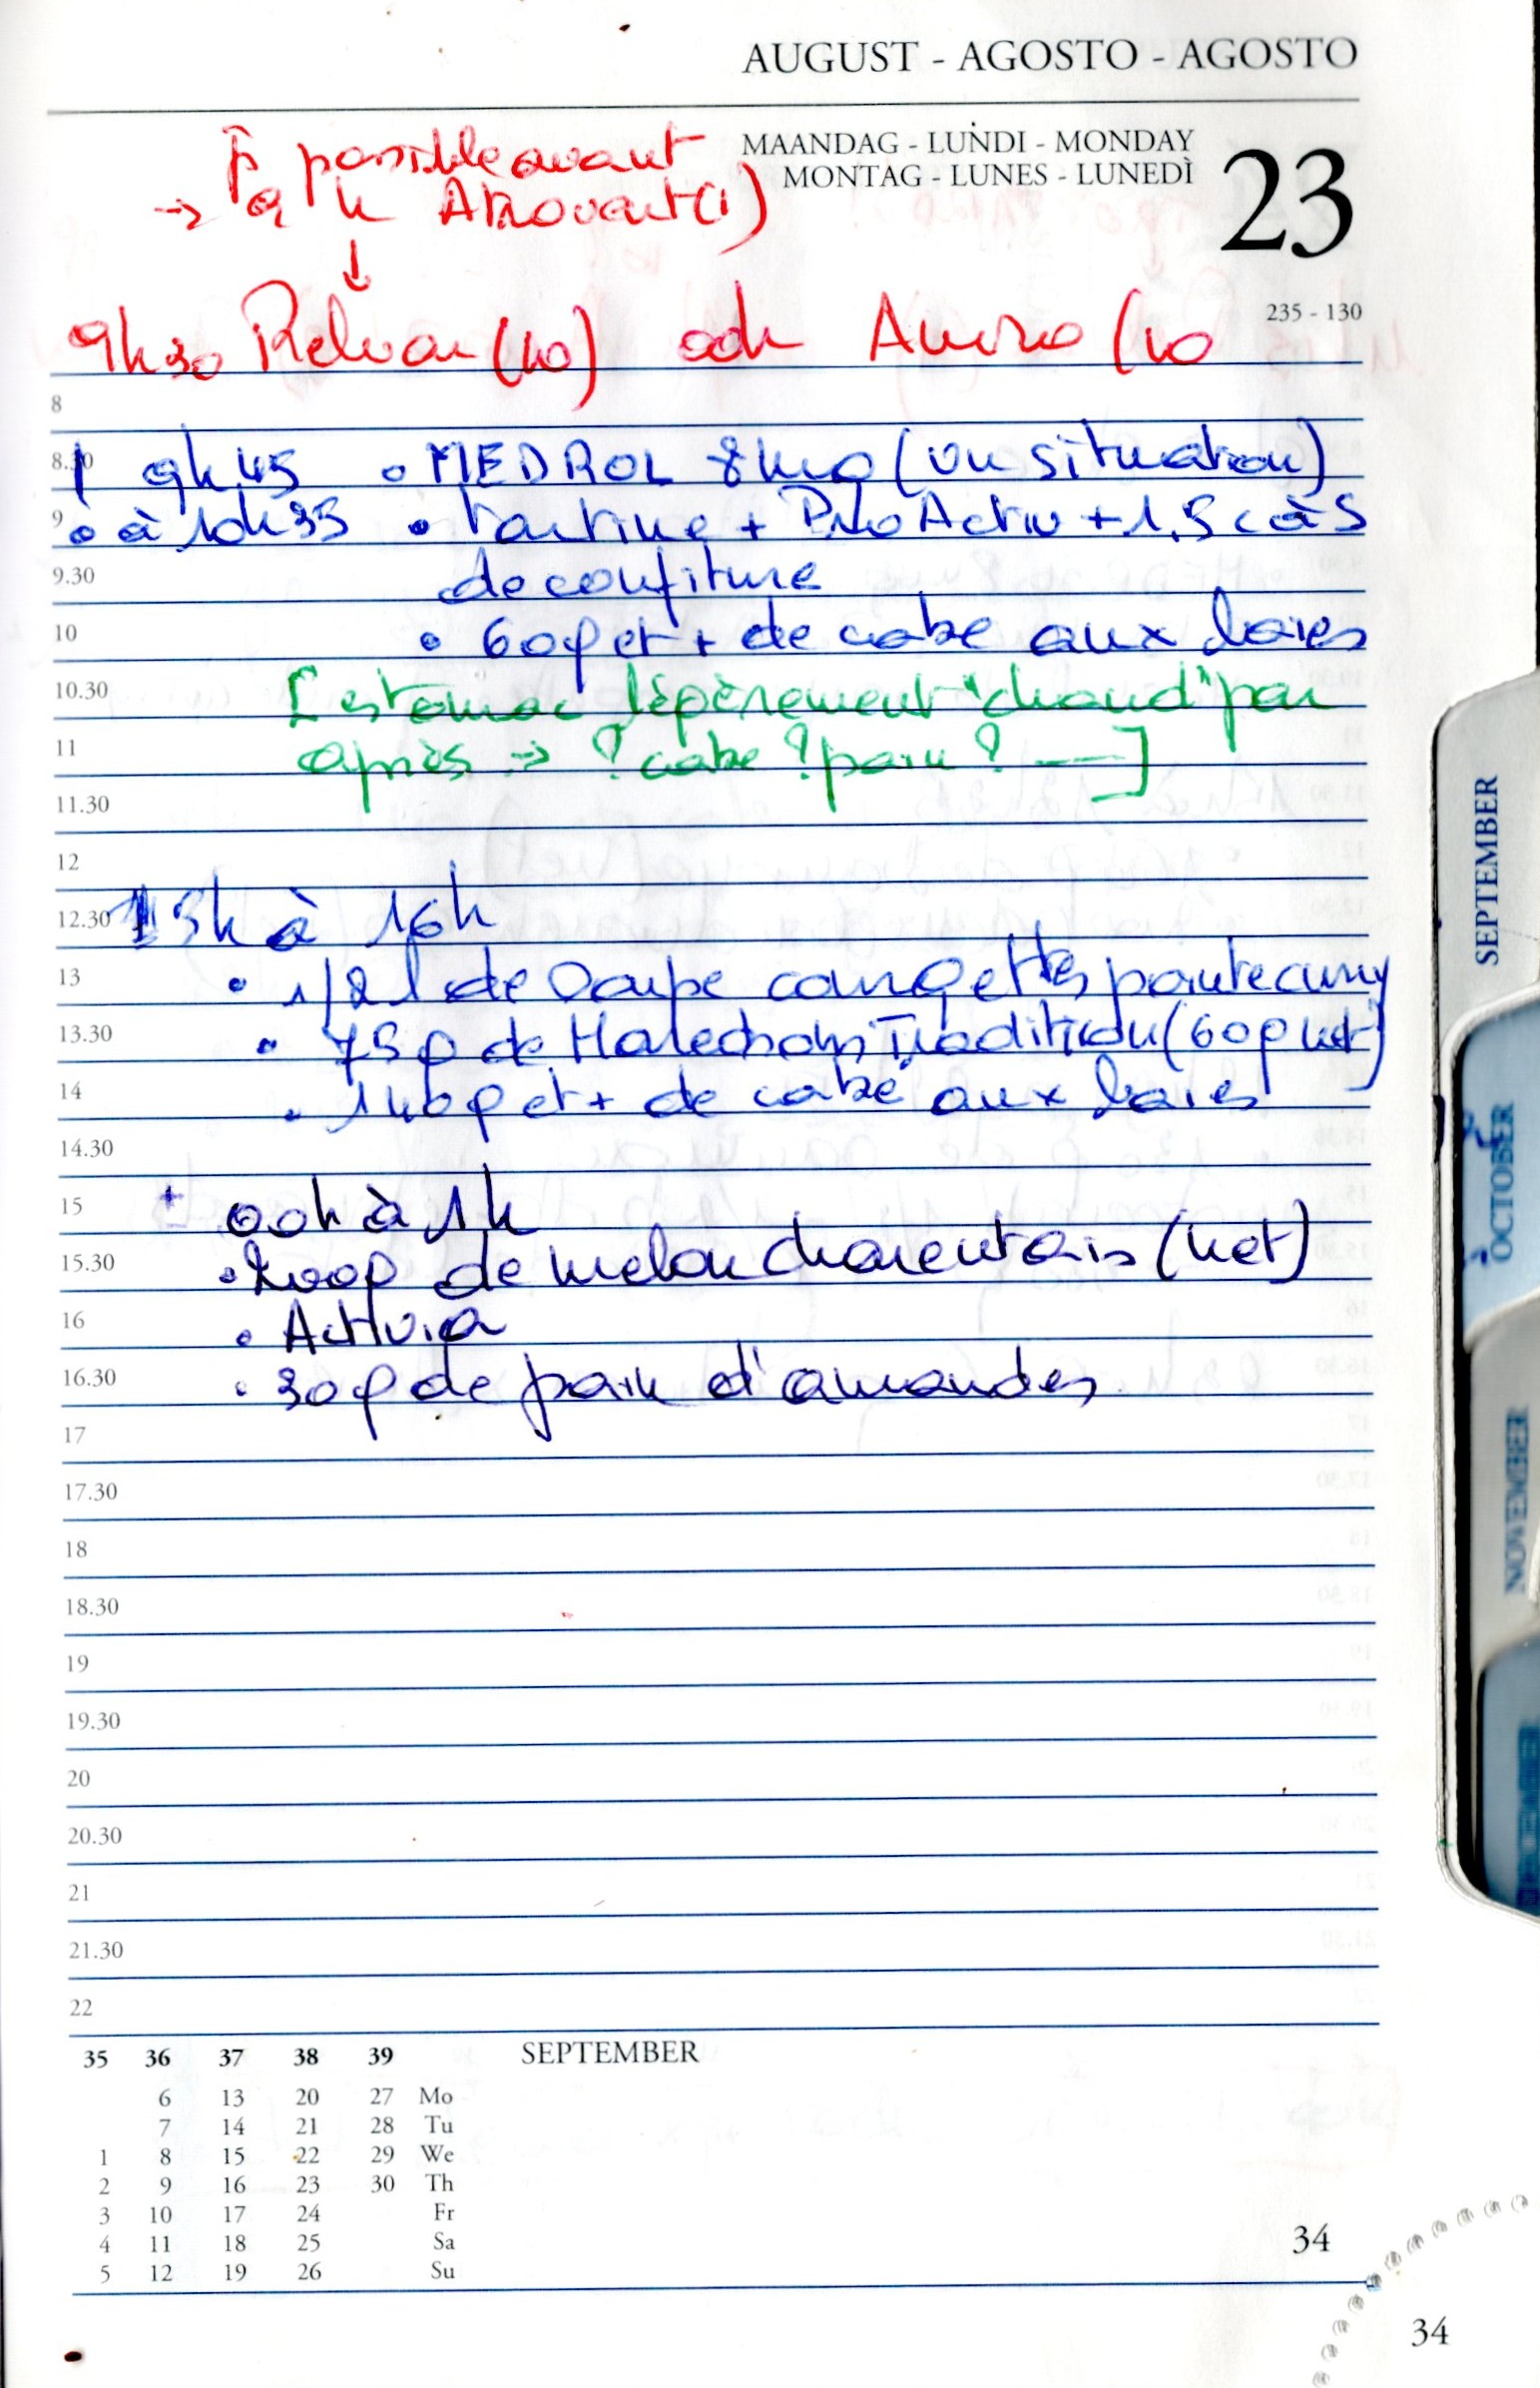 AUGUST - AGOSTO - AGOSTO
MAANDAG - LUNDI - MONDAY
MONTAG - LUNES - LUNEDÌ
23
235 - 130
possible avant
→ 9 h Atrovent (1)
↓
9h30 Relvar (10) 00h Amiro (10
8
8.30 9h45 • MEDROL 8mg (vu situation)
9 • à 10h35 • Tartine + ProActiv + 1,5 c à S
9.30 de confiture
10 • 60g et + de cake aux baies
10.30 [estomac légèrement "chaud" par
11 après → ? cake ? pain ? —]
11.30
12
12.30 15h à 16h
13 • 1/2 l de soupe courgettes curry
13.30 • 75g de Tradition (60g net)
14 • 140g et + de cake aux baies
14.30
15 ± 00h à 1h
15.30 • de melon charentais (net)
16 • Activia
16.30 • 30g de pain d'amandes
17
17.30
18
18.30
19
19.30
20
20.30
21
21.30
22
35 36 37 38 39 SEPTEMBER
6 13 20 27 Mo
7 14 21 28 Tu
1 8 15 22 29 We
2 9 16 23 30 Th
3 10 17 24 Fr
4 11 18 25 Sa
5 12 19 26 Su
34
34
SEPTEMBER
OCTOBER
NOVEMBER